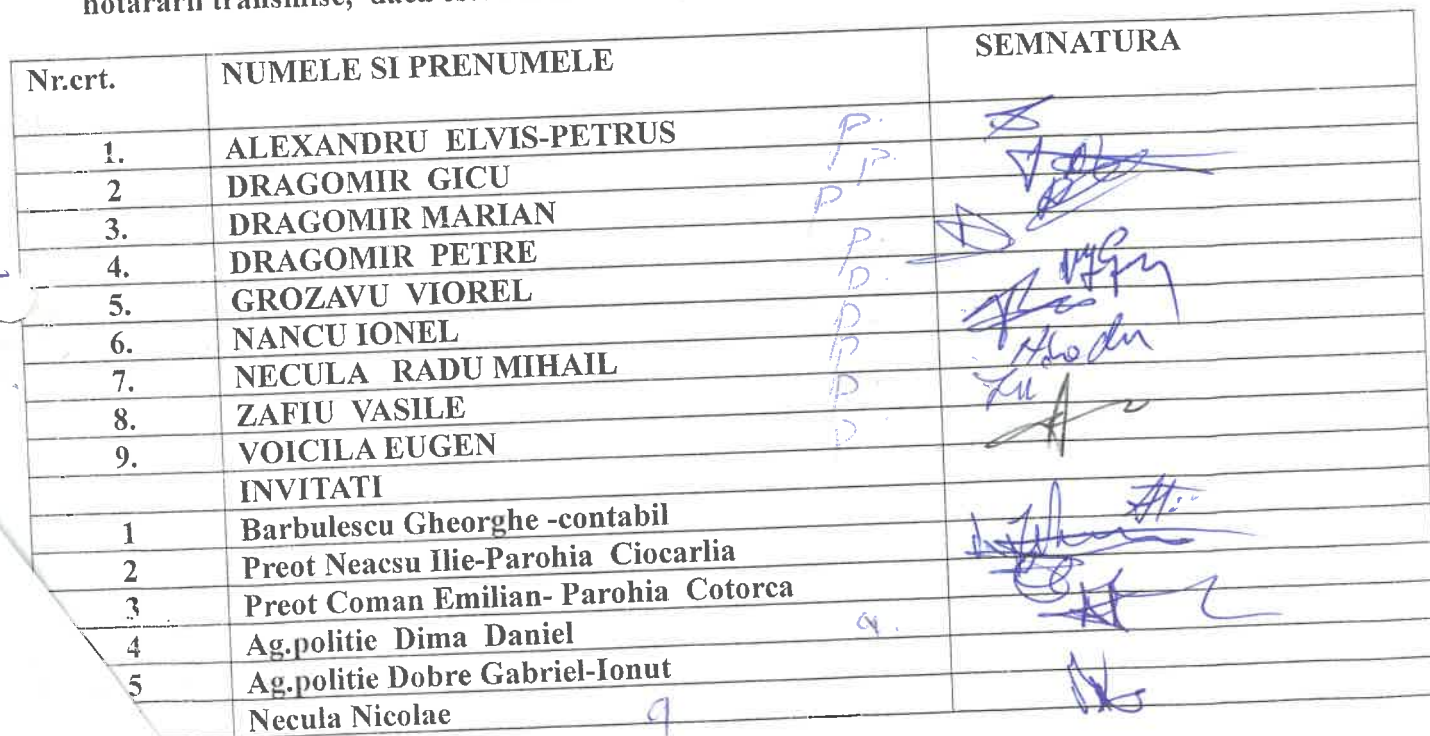 hotararii transmise,
Nr.crt. NUMELE SI PRENUMELE SEMNATURA
1. ALEXANDRU ELVIS-PETRUS P.
2 DRAGOMIR GICU P.
3. DRAGOMIR MARIAN P
4. DRAGOMIR PETRE P.
5. GROZAVU VIOREL P.
6. NANCU IONEL P
7. NECULA RADU MIHAIL P
8. ZAFIU VASILE P
9. VOICILA EUGEN P
INVITATI
1 Barbulescu Gheorghe -contabil
2 Preot Neacsu Ilie-Parohia Ciocarlia
3 Preot Coman Emilian- Parohia Cotorca
4 Ag.politie Dima Daniel a.
5 Ag.politie Dobre Gabriel-Ionut
Necula Nicolae